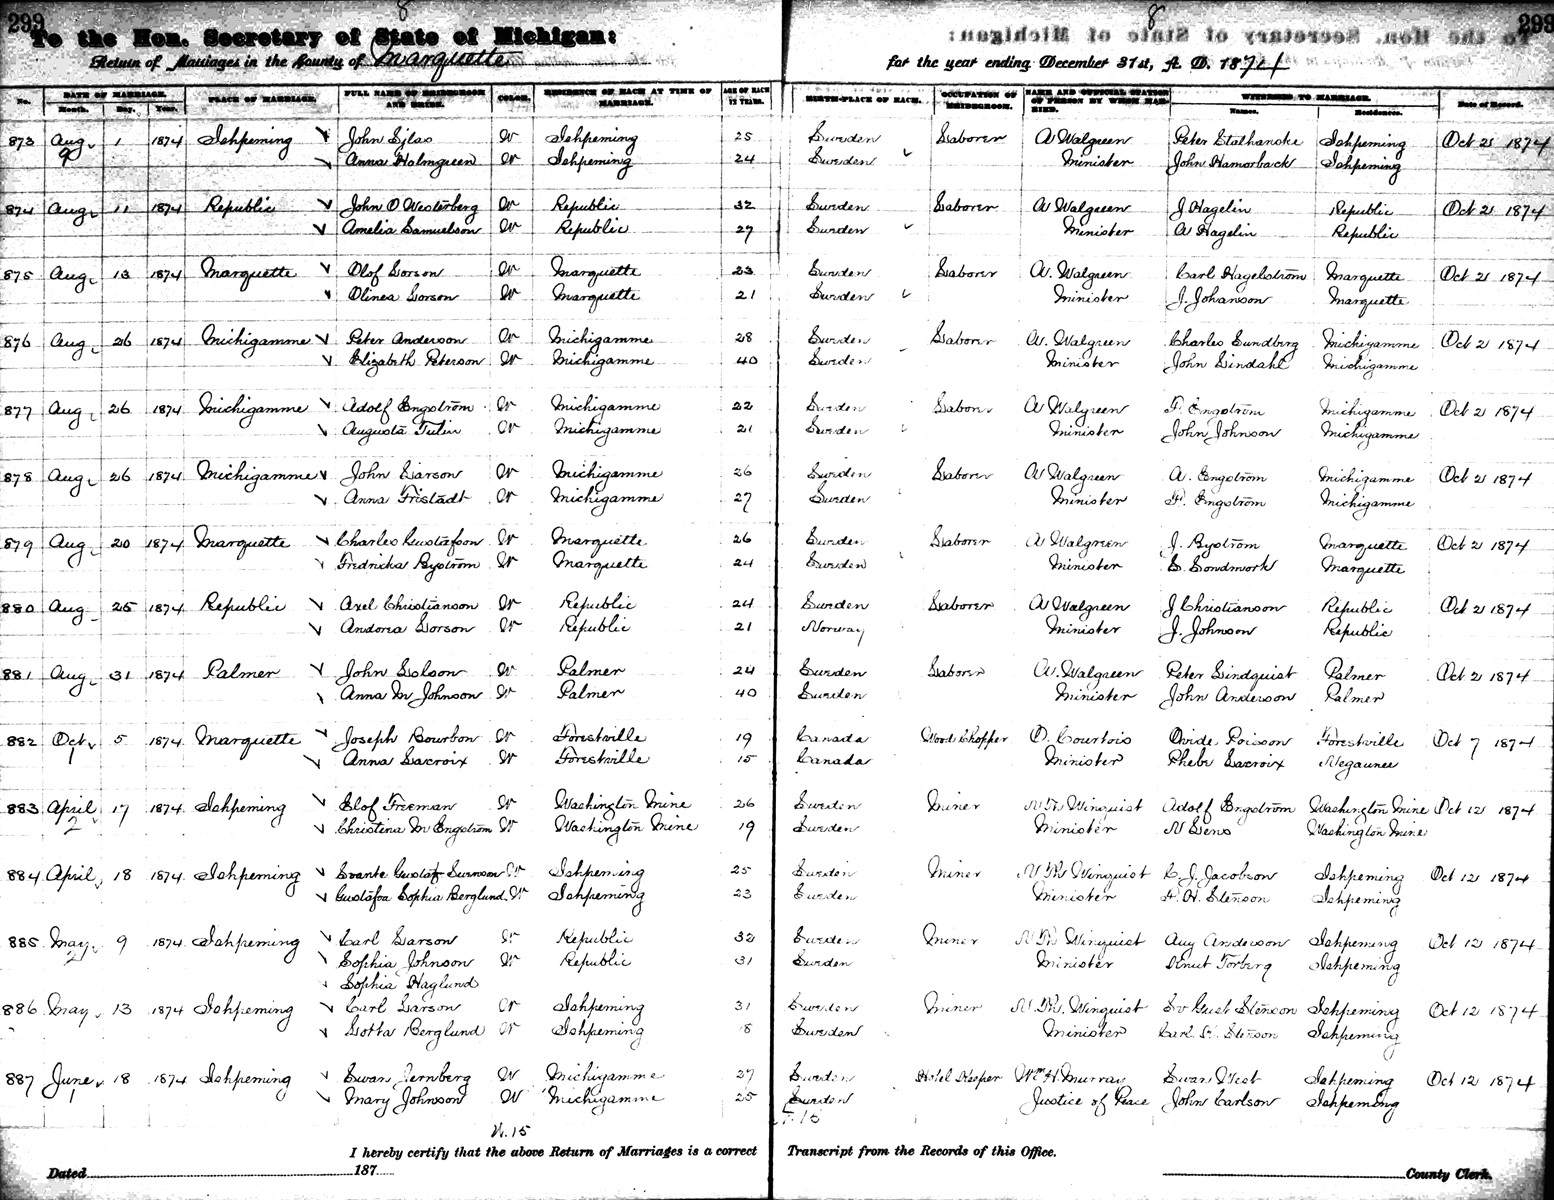 8 8
299 299
To the Hon. Secretary of State of Michigan:
Return of Marriages in the County of Marquette for the year ending December 31st, A. D. 1874
No. DATE OF MARRIAGE. PLACE OF MARRIAGE. FULL NAME OF BRIDEGROOM AND BRIDE. COLOR. RESIDENCE OF EACH AT TIME OF MARRIAGE. AGE OF EACH IN YEARS. BIRTH-PLACE OF EACH. OCCUPATION OF BRIDEGROOM. NAME AND OFFICIAL STATION OF PERSON BY WHOM MARRIED. WITNESSES TO MARRIAGE. Date of Record.
Month. Day. Year. Names. Residences.
873 Aug 1 1874 Ishpeming John Silas W Ishpeming 25 Sweden Laborer A Walgreen Peter Stalhanske Ishpeming Oct 21 1874
9 Anna Holmgreen W Ishpeming 24 Sweden Minister John Hamorback Ishpeming
874 Aug 11 1874 Republic John O Westerberg W Republic 32 Sweden Laborer A Walgreen J Hagelin Republic Oct 21 1874
Amelia Samuelson W Republic 27 Sweden Minister A Hagelin Republic
875 Aug 13 1874 Marquette Olof Lorson W Marquette 23 Sweden Laborer A. Walgreen Carl Hagelstrom Marquette Oct 21 1874
Olinea Lorson W Marquette 21 Sweden Minister J. Johanson Marquette
876 Aug 26 1874 Michigamme Peter Anderson W Michigamme 28 Sweden Laborer A. Walgreen Charles Sundberg Michigamme Oct 21 1874
Elizabeth Peterson W Michigamme 40 Sweden Minister John Lindahl Michigamme
877 Aug 26 1874 Michigamme Adolf Engström W Michigamme 22 Sweden Laborer A Walgreen F. Engström Michigamme Oct 21 1874
Augusta Tulin W Michigamme 21 Sweden Minister John Johnson Michigamme
878 Aug 26 1874 Michigamme John Larson W Michigamme 26 Sweden Laborer A Walgreen A. Engström Michigamme Oct 21 1874
Anna Fristadt W Michigamme 27 Sweden Minister F. Engström Michigamme
879 Aug 20 1874 Marquette Charles Gustafson W Marquette 26 Sweden Laborer A Walgreen J. Byström Marquette Oct 21 1874
Fredricka Byström W Marquette 24 Sweden Minister S. Sondmork Marquette
880 Aug 25 1874 Republic Axel Christianson W Republic 24 Sweden Laborer A Walgreen J Christianson Republic Oct 21 1874
Andorea Lorson W Republic 21 Norway Minister J. Johnson Republic
881 Aug 31 1874 Palmer John Golson W Palmer 24 Sweden Laborer A. Walgreen Peter Lindquist Palmer Oct 21 1874
Anna M Johnson W Palmer 40 Sweden Minister John Anderson Palmer
882 Oct 5 1874 Marquette Joseph Bourbon W Forestville 19 Canada Wood Chopper O. Courtois Ovide Poisson Forestville Oct 7 1874
1 Anna Lacroix W Forestville 15 Canada Minister Phebe Lacroix Negaunee
883 April 17 1874 Ishpeming Elof Freeman W Washington Mine 26 Sweden Miner N Th Winquist Adolf Engström Washington Mine Oct 12 1874
2 Christina M Engström W Washington Mine 19 Sweden Minister N Lens Washington Mine
884 April 18 1874 Ishpeming Svante Gustaf Swenson W Ishpeming 25 Sweden Miner N Th Winquist C. J. Jacobson Ishpeming Oct 12 1874
Gustafva Sophia Berglund W Ishpeming 23 Sweden Minister A. H. Stenson Ishpeming
885 May 9 1874 Ishpeming Carl Larson W Republic 32 Sweden Miner N Th Winquist Aug Anderson Ishpeming Oct 12 1874
2 Sophia Johnson W Republic 31 Sweden Minister Knut Torberg Ishpeming
Sophia Haglund
886 May 13 1874 Ishpeming Carl Larson W Ishpeming 31 Sweden Miner N Th. Winquist Sv Gust Stenson Ishpeming Oct 12 1874
Lotta Berglund W Ishpeming 18 Sweden Minister Carl H. Stenson Ishpeming
887 June 18 1874 Ishpeming Swan Jernberg W Michigamme 27 Sweden Hotel Keeper Wm H. Murray Swan West Ishpeming Oct 12 1874
1 Mary Johnson W Michigamme 25 Sweden Justice of Peace John Carlson Ishpeming
W. 15 F. 15
I hereby certify that the above Return of Marriages is a correct Transcript from the Records of this Office.
Dated 187 County Clerk.